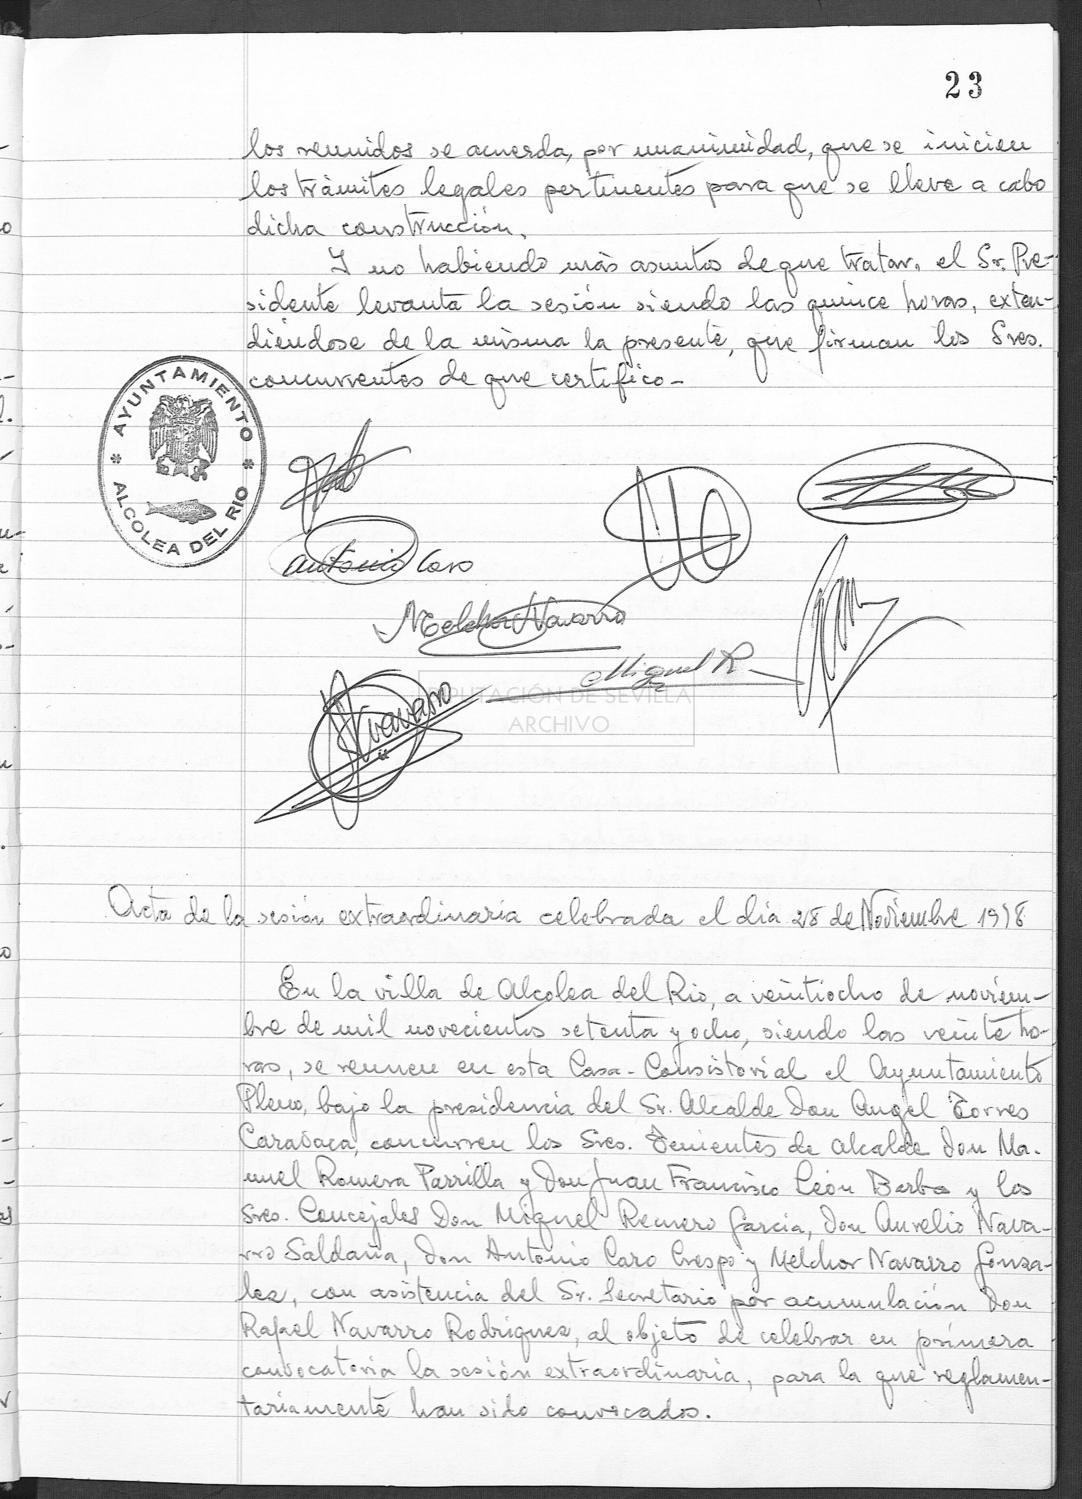 23
los reunidos se acuerda, por unanimidad, que se inicien
los trámites legales pertinentes para que se lleve a cabo
dicha construcción.
Y no habiendo más asuntos de que tratar, el Sr. Pre-
sidente levanta la sesión siendo las quince horas, exten-
diéndose de la misma la presente, que firman los Sres.
concurrentes de que certifico-
* AYUNTAMIENTO *
ALCOLEA DEL RIO
Antonio Caro
Melchor Navarro
Miguel R
Navarro
DIPUTACIÓN DE SEVILLA
ARCHIVO
Acta de la sesión extraordinaria celebrada el dia 28 de Noviembre 1978
En la villa de Alcolea del Rio, a veintiocho de noviem-
bre de mil novecientos setenta y ocho, siendo las veinte ho-
ras, se reunen en esta Casa-Consistorial el Ayuntamiento
Pleno, bajo la presidencia del Sr. Alcalde Don Angel Torres
Caravaca, concurren los Sres. Tenientes de Alcalde Don Ma-
nuel Romera Parrilla y Don Juan Francisco León Barba y los
Sres. Concejales Don Miguel Romero Garcia, Don Aurelio Nava-
rro Saldaña, Don Antonio Caro Crespo y Melchor Navarro Gonza-
lez, con asistencia del Sr. Secretario por acumulación Don
Rafael Navarro Rodriguez, al objeto de celebrar en primera
convocatoria la sesión extraordinaria, para la que reglamen-
tariamente han sido convocados.